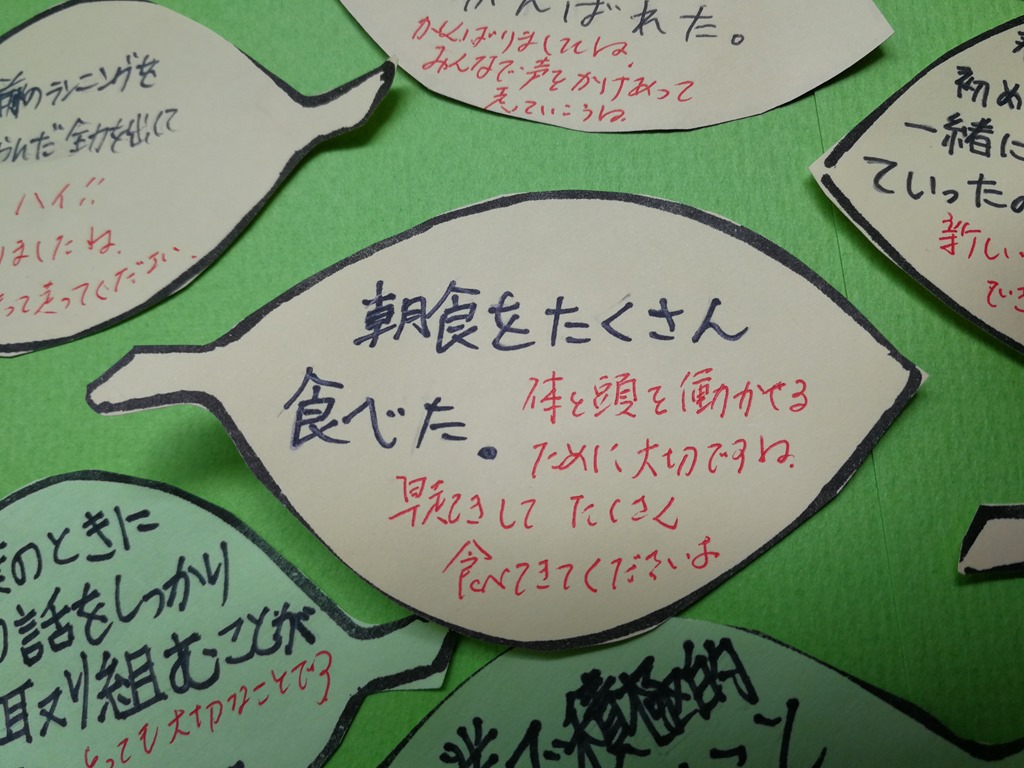 ばれた。
がんばりましたね。
みんなで声をかけあって
走っていこうね。
前のランニングを
全力を出して
ハイ!!
りましたね。
走ってください。
初め
一緒に
ていったの
新しい
朝食をたくさん
食べた。
体と頭を働かせる
ために大切ですね。
早起きして たくさん
食べてきてくださいね
のときに
話をしっかり
取り組むことが
とっても大切なことです
積極的